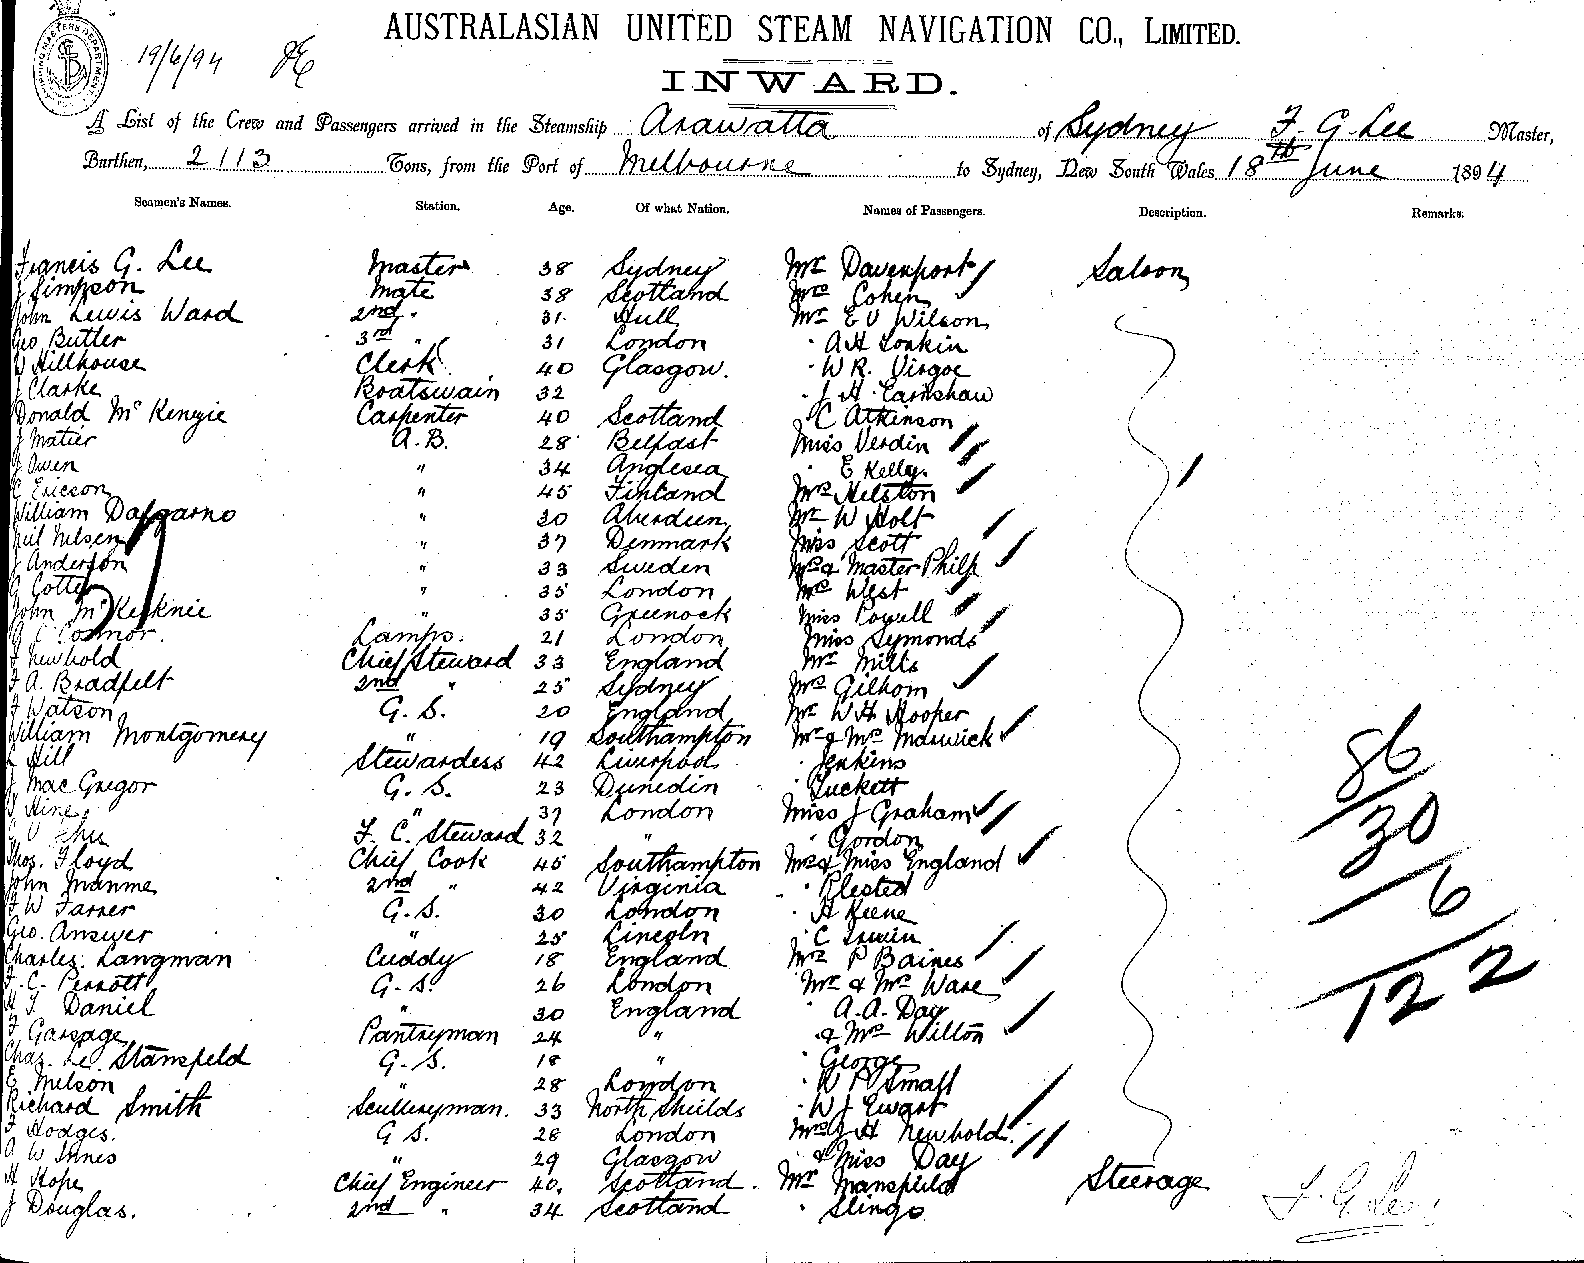 AUSTRALASIAN UNITED STEAM NAVIGATION CO., LIMITED.
19/6/94
INWARD.
A List of the Crew and Passengers arrived in the Steamship Arawatta of Sydney F. G. Lee Master,
Burthen, 2113 Tons, from the Port of Melbourne to Sydney, New South Wales 18th June 1894
Seamen's Names. Station. Age. Of what Nation. Names of Passengers. Description. Remarks.
Francis G. Lee Master 38 Sydney Mr Davenport Saloon
J Simpson Mate 38 Scotland Mrs Cohen
John Lewis Ward 2nd " 31 Hull Mr E V Wilson
Geo Butler 3rd " 31 London " A H Lonkin
W Hillhouse Clerk 40 Glasgow. " W R. Virgoe
J Clarke Boatswain 32 " J H Earnshaw
Donald McKenzie Carpenter 40 Scotland " C Atkinson
J Matier A.B. 28 Belfast Miss Verdin
J Owen " 34 Anglesea " E Kelly
C Ericson " 45 Finland Mrs Helston
William Dalgarno " 30 Aberdeen Mr W Holt
Neil Nelsen " 37 Denmark Miss Scott
J Anderson " 33 Sweden Mrs & Master Philp
G Cotter " 35 London Mrs West
John McKechnie " 35 Greenock Miss Powell
O'Connor. Lamps. 21 London Miss Symonds
J Newbold Chief Steward 33 England Mr Mills
F A. Bradfelt 2nd " 25 Sydney Mrs Gilhom
J Watson G. S. 20 England Mr W H Hooper
William Montgomery " 19 Southampton Mr & Mrs Marwick
L Hill Stewardess 42 Liverpool " Jenkins
J. MacGregor G. S. 23 Dunedin " Luckett
Hine " 37 London Miss J Graham
F. C. Steward 32 " " Gordon
Thos. Floyd Chief Cook 45 Southampton Mrs & Miss England
John Manme 2nd " 42 Virginia " Plested
F W Farrer G.S. 30 London " H Keene
Geo. Answer " 25 Lincoln " C Irwin
Charles Langman Cuddy 18 England Mrs P Baines
F. C. Perrott G.S. 26 London Mr & Mrs Ware
H J Daniel " 30 England " A. A. Day
F Garsage Pantryman 24 " " & Mrs Wilton
Chas. Le. Stansfeld G. S. 18 " " George
E Nelson " 28 London " W P Small
Richard Smith Sculleryman. 33 North Shields " W J Ewart
F Hodges. G S. 28 London Mrs J H Newbold
A W Innes " 29 Glasgow " & Miss Day
H Hope Chief Engineer 40. Scotland. Mr Mansfield Steerage
J Douglas. 2nd " 34 Scotland " Slings
86
30
6
122
F. G. Lee